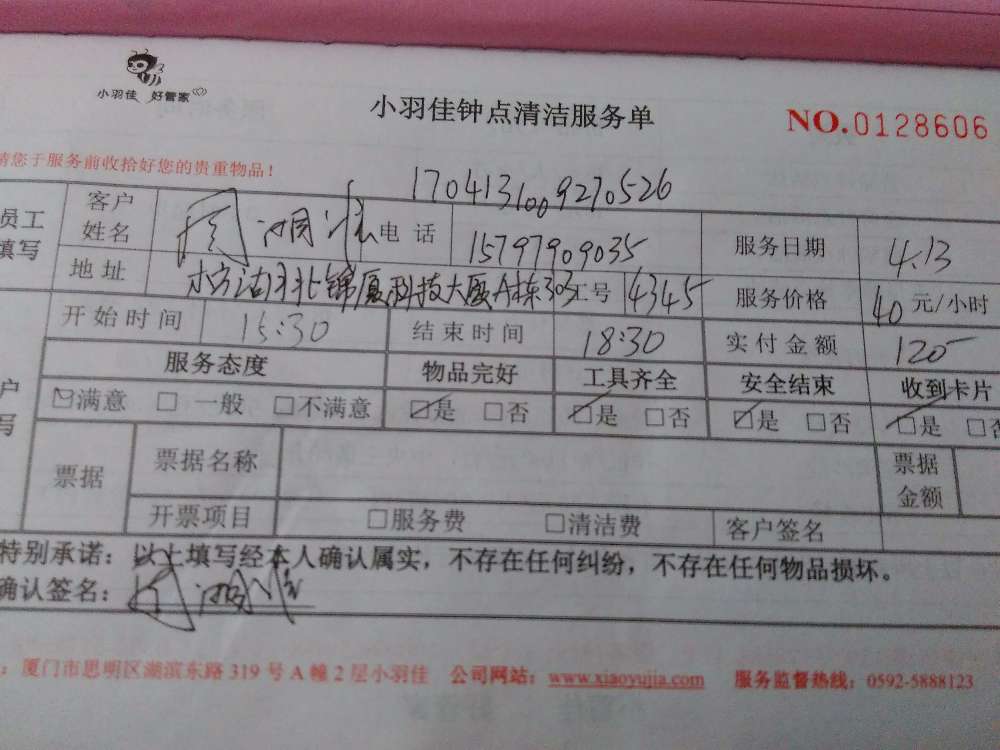 小羽佳 好管家
小羽佳钟点清洁服务单
NO.0128606
请您于服务前收拾好您的贵重物品！
1704131009270526
员工填写
客户姓名 周 电话 15797909035 服务日期 4.13
地址 锦厦科技大厦A栋303 工号 14345 服务价格 40 元/小时
开始时间 15:30 结束时间 18:30 实付金额 120
服务态度 物品完好 工具齐全 安全结束 收到卡片
户写
☑满意 □一般 □不满意 ☑是 □否 ☑是 □否 ☑是 □否 ☑是 □否
票据 票据名称 票据金额
开票项目 □服务费 □清洁费 客户签名
特别承诺：以上填写经本人确认属实，不存在任何纠纷，不存在任何物品损坏。
确认签名：周
：厦门市思明区湖滨东路 319 号 A 幢 2 层小羽佳 公司网站：www.xiaoyujia.com 服务监督热线：0592-5888123